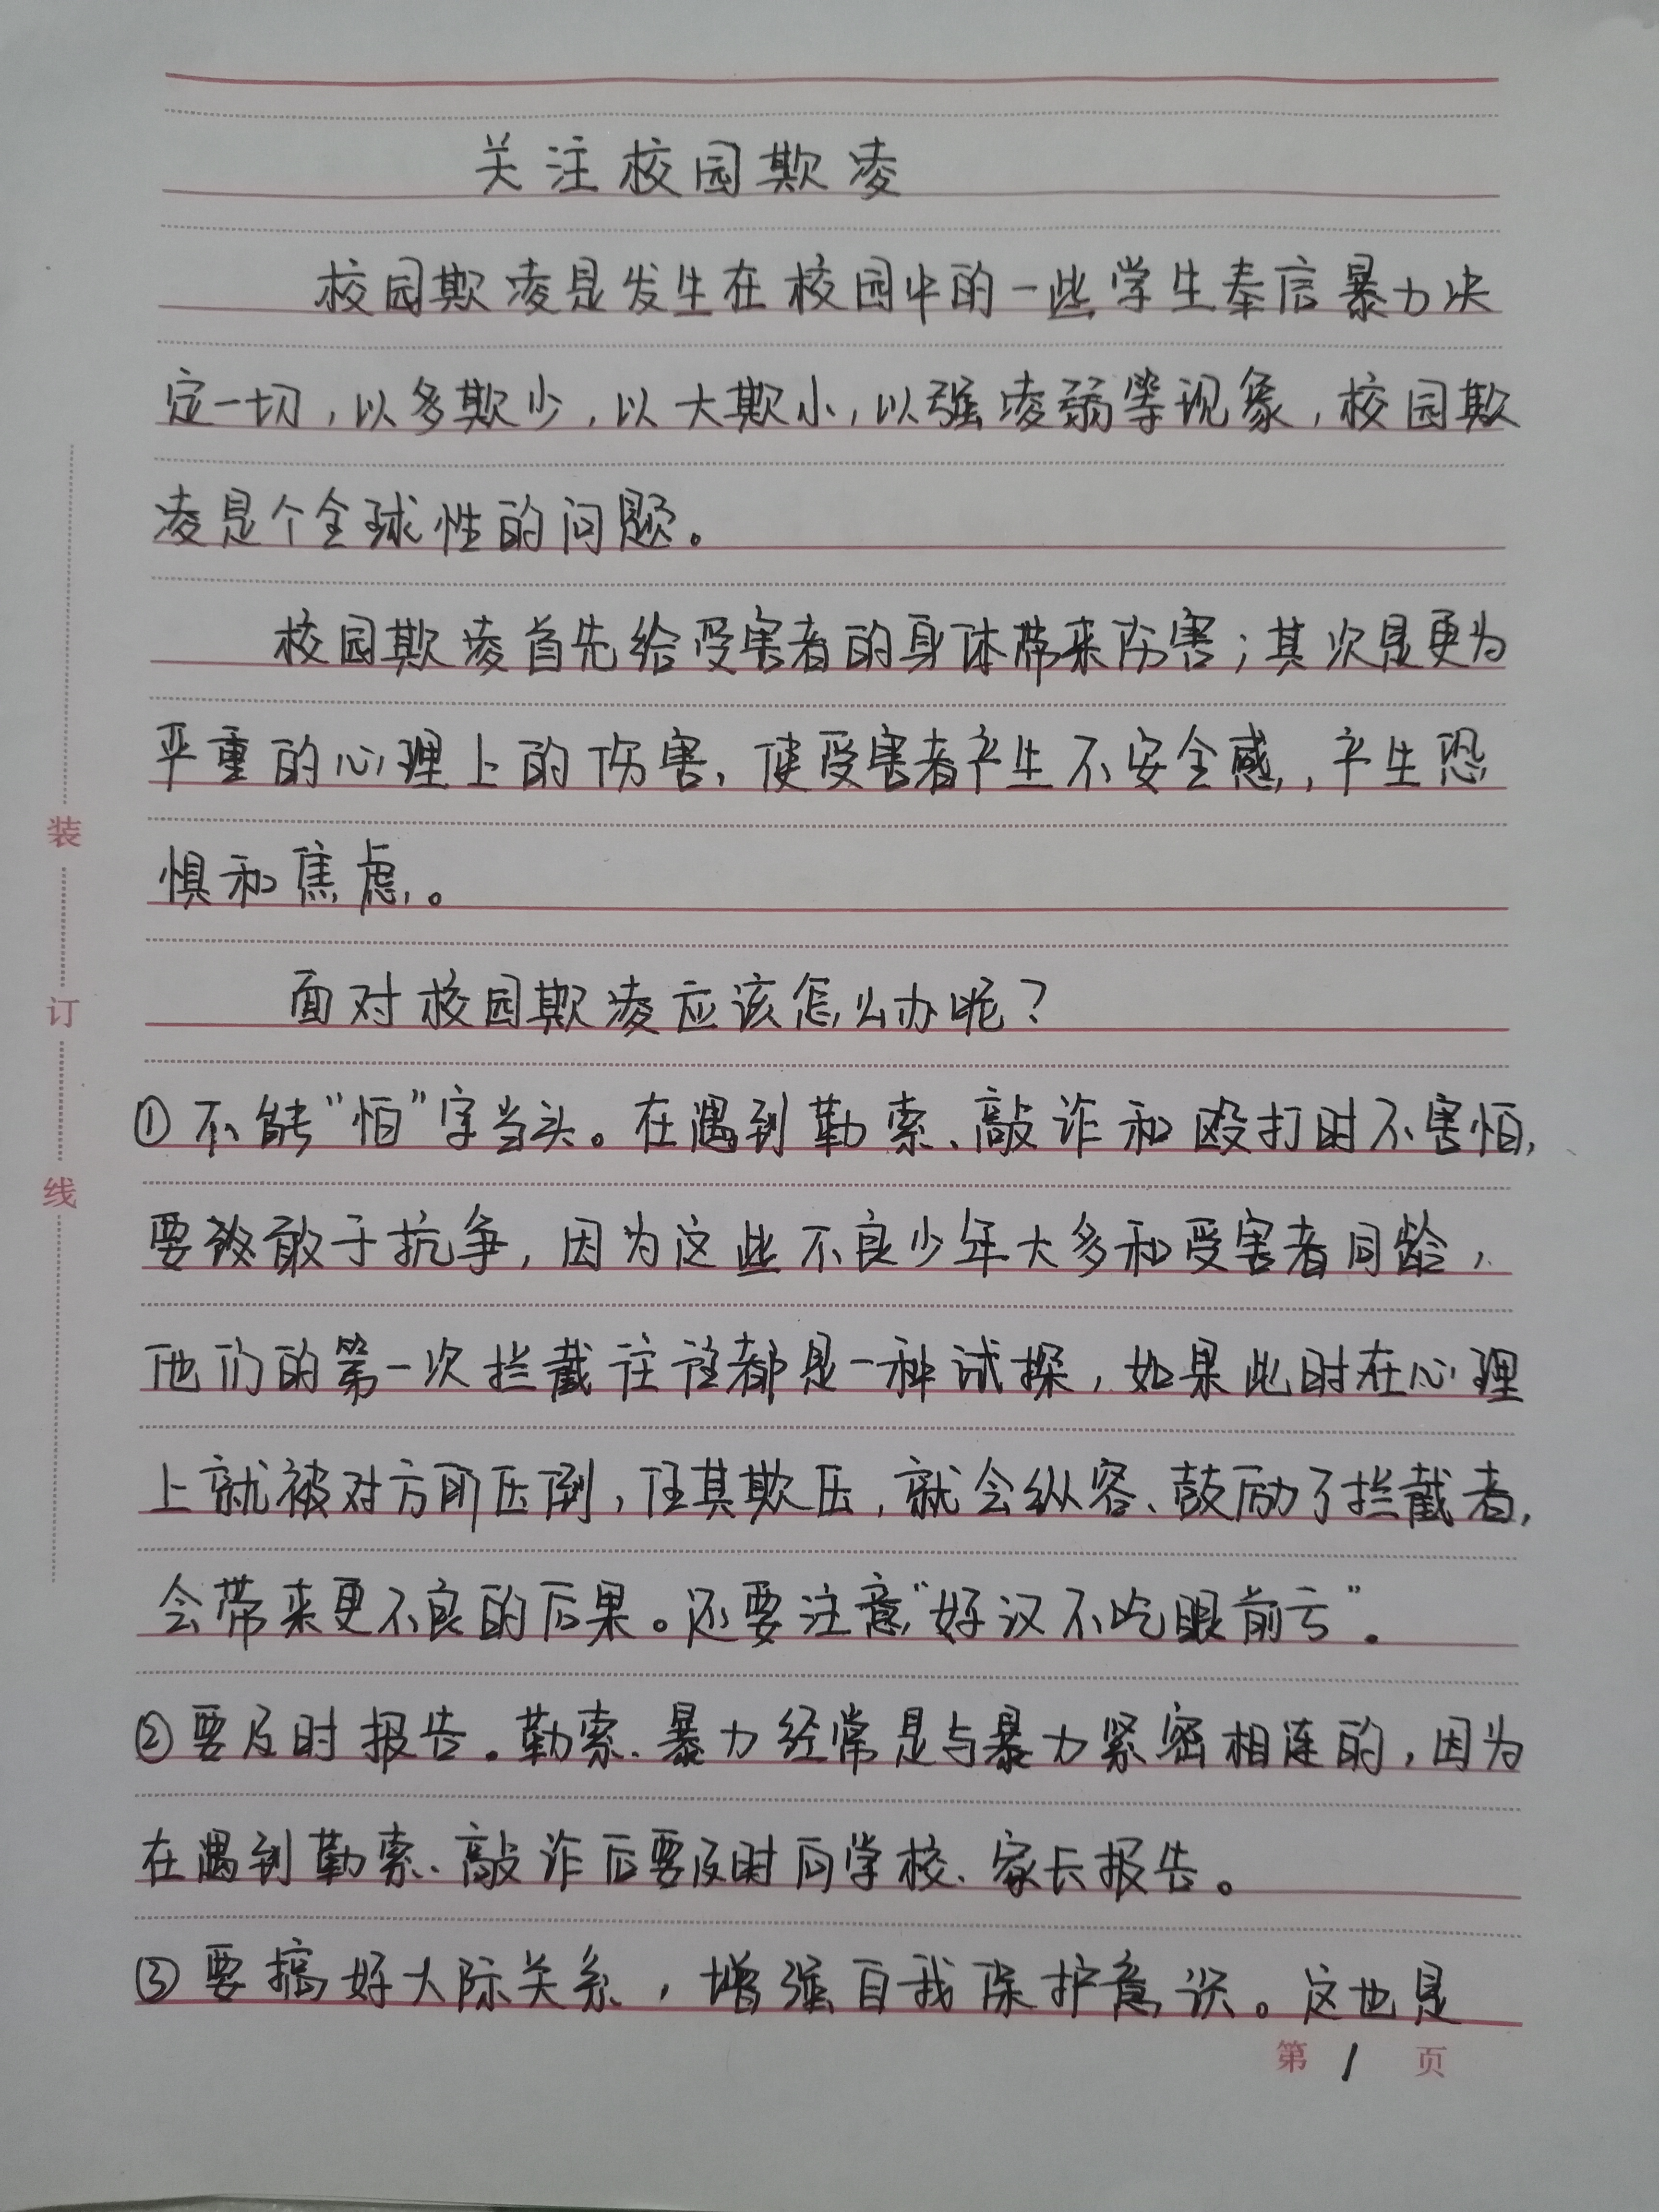 关注校园欺凌
校园欺凌是发生在校园中的一些学生奉信暴力决
定一切,以多欺少,以大欺小,以强凌弱等现象,校园欺
凌是个全球性的问题。
校园欺凌首先给受害者的身体带来伤害;其次是更为
严重的心理上的伤害,使受害者产生不安全感,产生恐
惧和焦虑。
面对校园欺凌应该怎么办呢?
①不能“怕”字当头。在遇到勒索、敲诈和殴打时不害怕,
要敢于抗争,因为这些不良少年大多和受害者同龄,
他们的第一次拦截往往都是一种试探,如果此时在心理
上就被对方所压倒,任其欺压,就会纵容、鼓励了拦截者,
会带来更不良的后果。还要注意“好汉不吃眼前亏”。
②要及时报告。勒索、暴力经常是与暴力紧密相连的,因为
在遇到勒索、敲诈后要及时向学校、家长报告。
③要搞好人际关系,增强自我保护意识。这也是
第1页
装
订
线